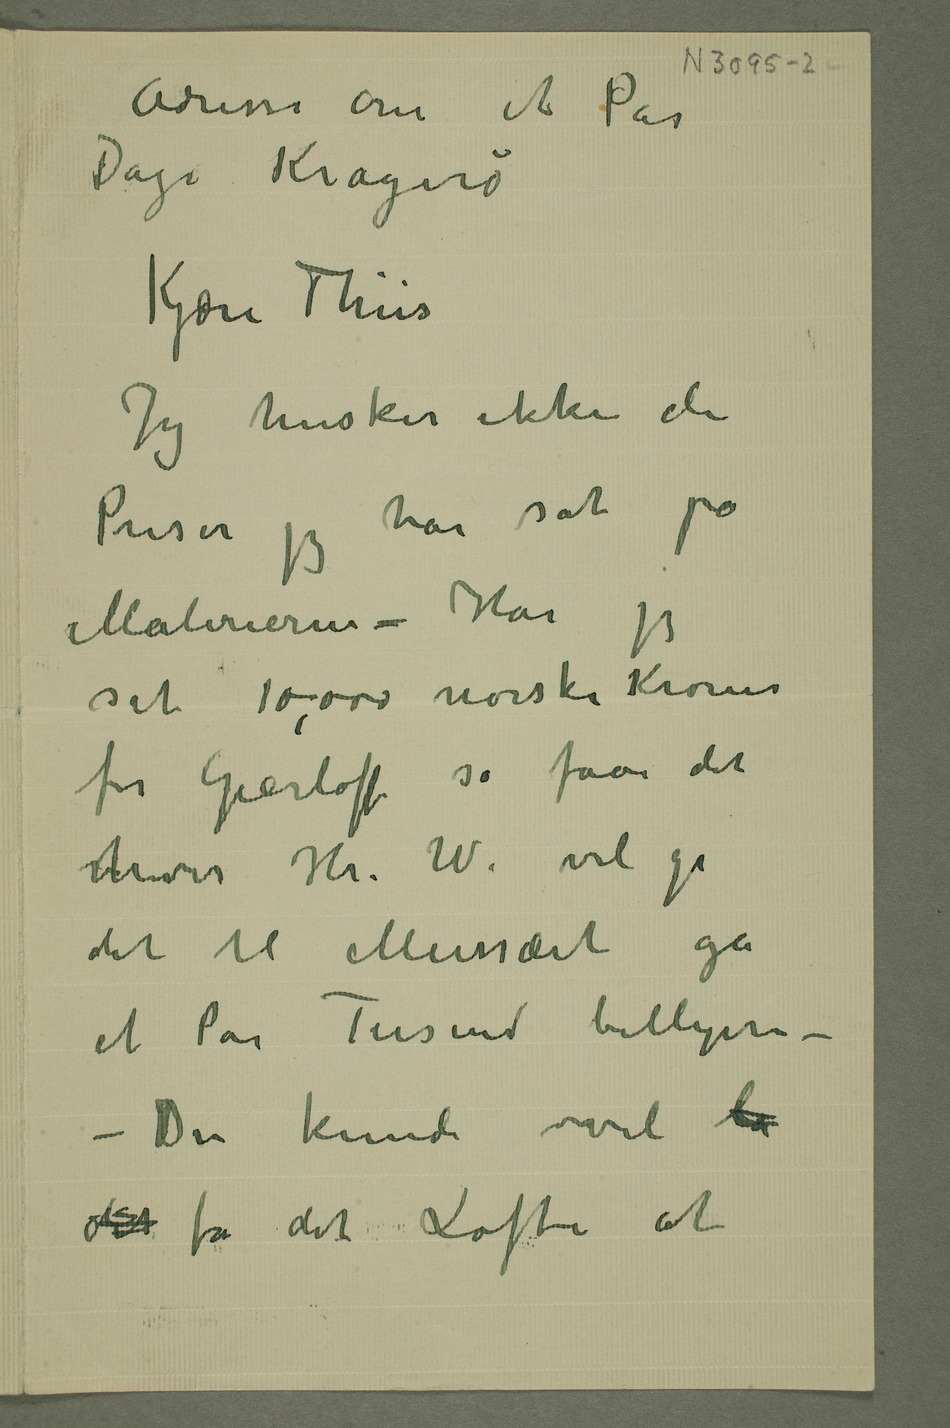 N3095-2
Adresse om et Par
Dage Kragerö
Kjære Thiis
Jeg husker ikke de
Priser jeg har sat på
Malerierne – Har jeg
sat 10,000 norske Kroner
for Gierløff så faar det
hvis Hr. W. vil gi
det til Mussæet gå
et Par Tusend billigere –
– Du kunde vel la
det få det Løfte at